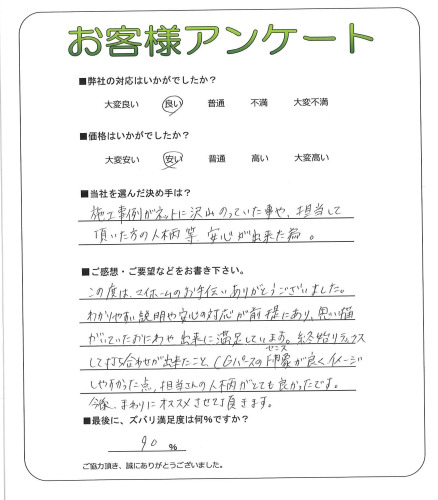 お客様アンケート
■弊社の対応はいかがでしたか?
大変良い 良い 普通 不満 大変不満
■価格はいかがでしたか?
大変安い 安い 普通 高い 大変高い
■当社を選んだ決め手は?
施工事例がネットに沢山のっていた事や、担当して
頂いた方の人柄等、安心が出来た為。
■ご感想・ご要望などをお書き下さい。
この度は、マイホームのお手伝いありがとうございました。
わかりやすい説明や安心の対応が前提にあり、思い描
がいていたおにわや 出来に満足しています。終始リラックス
して打ち合わせが出来たこと、CGパースの印象が良くイメージ
センス
しやすかった点、担当さんの人柄がとても良かったです。
今後、まわりにオススメさせて頂きます。
■最後に、ズバリ満足度は何%ですか?
90 %
ご協力頂き、誠にありがとうございました。